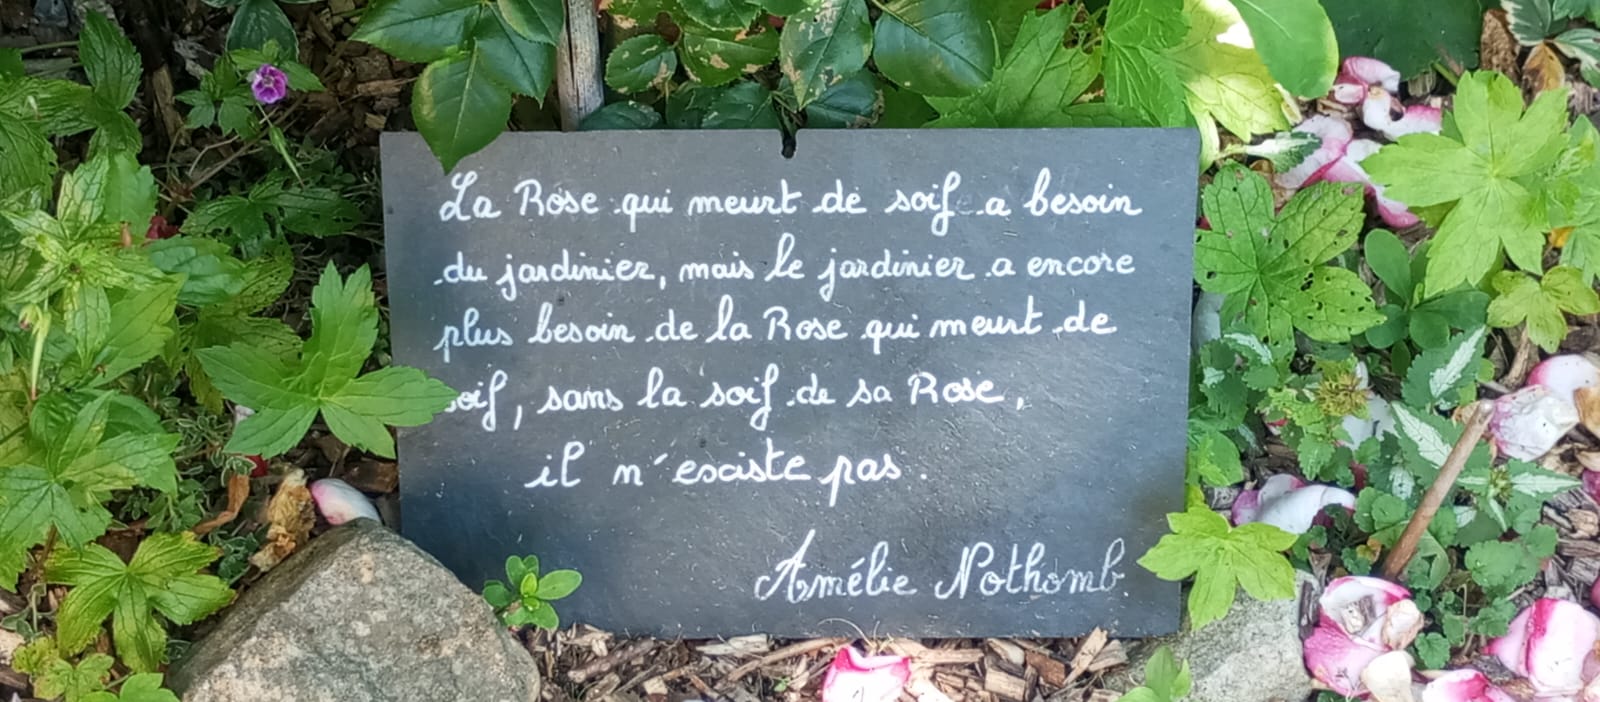 La Rose qui meurt de soif a besoin
du jardinier, mais le jardinier a encore
plus besoin de la Rose qui meurt de
soif, sans la soif de sa Rose,
il n'existe pas.
Amélie Nothomb